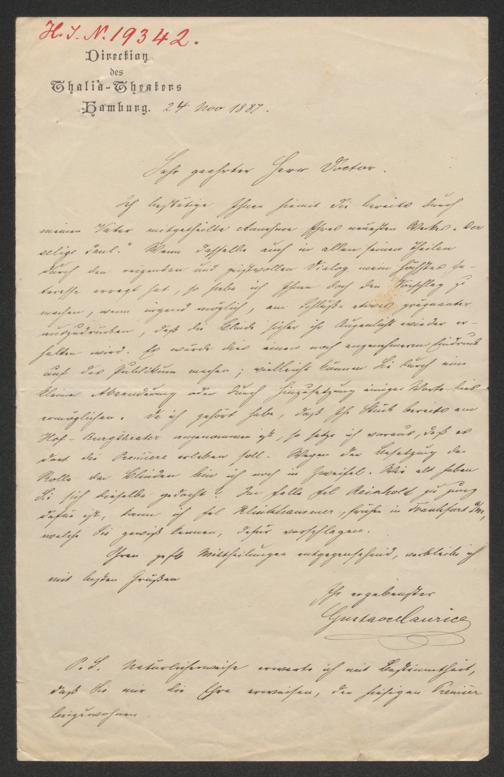 H. I. N. 19342.
Direction
des
Thalia-Theaters
Hamburg. 24 Nov 1887.
Sehr geehrter Herr Doctor.
Ich bestätige Ihnen hiemit die bereits durch
meinen Vater mitgetheilte Annahme Ihres neuesten Werkes "Der
selige Paul." Wenn dasselbe auch in allen seinen Theilen
durch den eleganten und geistvollen Dialog mein höchstes In-
teresse erregt hat, so habe ich Ihnen doch den Vorschlag zu
machen, wenn irgend möglich, am Schluße etwas prägnanter
auszudrücken, daß die Blinde sicher ihr Augenlicht wieder er-
halten wird. Es würde dies einen noch angenehmeren Eindruck
auf das Publikum machen; vielleicht können Sie durch eine
kleine Abänderung oder durch Hinzusetzung einiger Worte dies
ermöglichen. Da ich gehört habe, daß Ihr Stück bereits am
Hof-Burgtheater angenommen ist, so setze ich voraus, daß es
dort die Premiere erleben soll. Wegen der Besetzung der
Rolle der Blinden bin ich noch in Zweifel. Wie alt haben
Sie sich dieselbe gedacht? Im Falle Frl Reinhold zu jung
dafür ist, kann ich Frl Klinkhammer, früher in Frankfurt a/M,
welche Sie gewiß kennen, dafür vorschlagen.
Ihren gefl. Mittheilungen entgegensehend, verbleibe ich
mit besten Grüßen
Ihr ergebenster
Gustav Maurice
P. S. Natürlicherweise erwarte ich mit Bestimmtheit,
daß Sie mir die Ehre erweisen, der hiesigen Premiere
beizuwohnen.